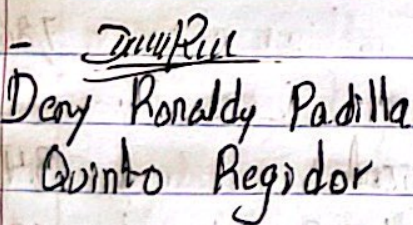 -
Deny Ronaldy Padilla
Quinto Regidor